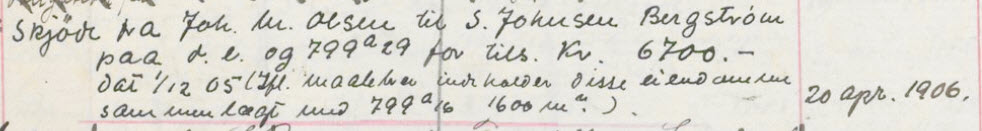 Skjöde fra Joh. M. Olsen til S. Johnsen Bergström
paa d. e. og 799ª29 for tils. Kr. 6700.-
dat 1/12 05 (Ifl. maalebrev indeholder disse eiendomme
sammenlagt med 799ª16 1600 m². ).
20 apr. 1906.